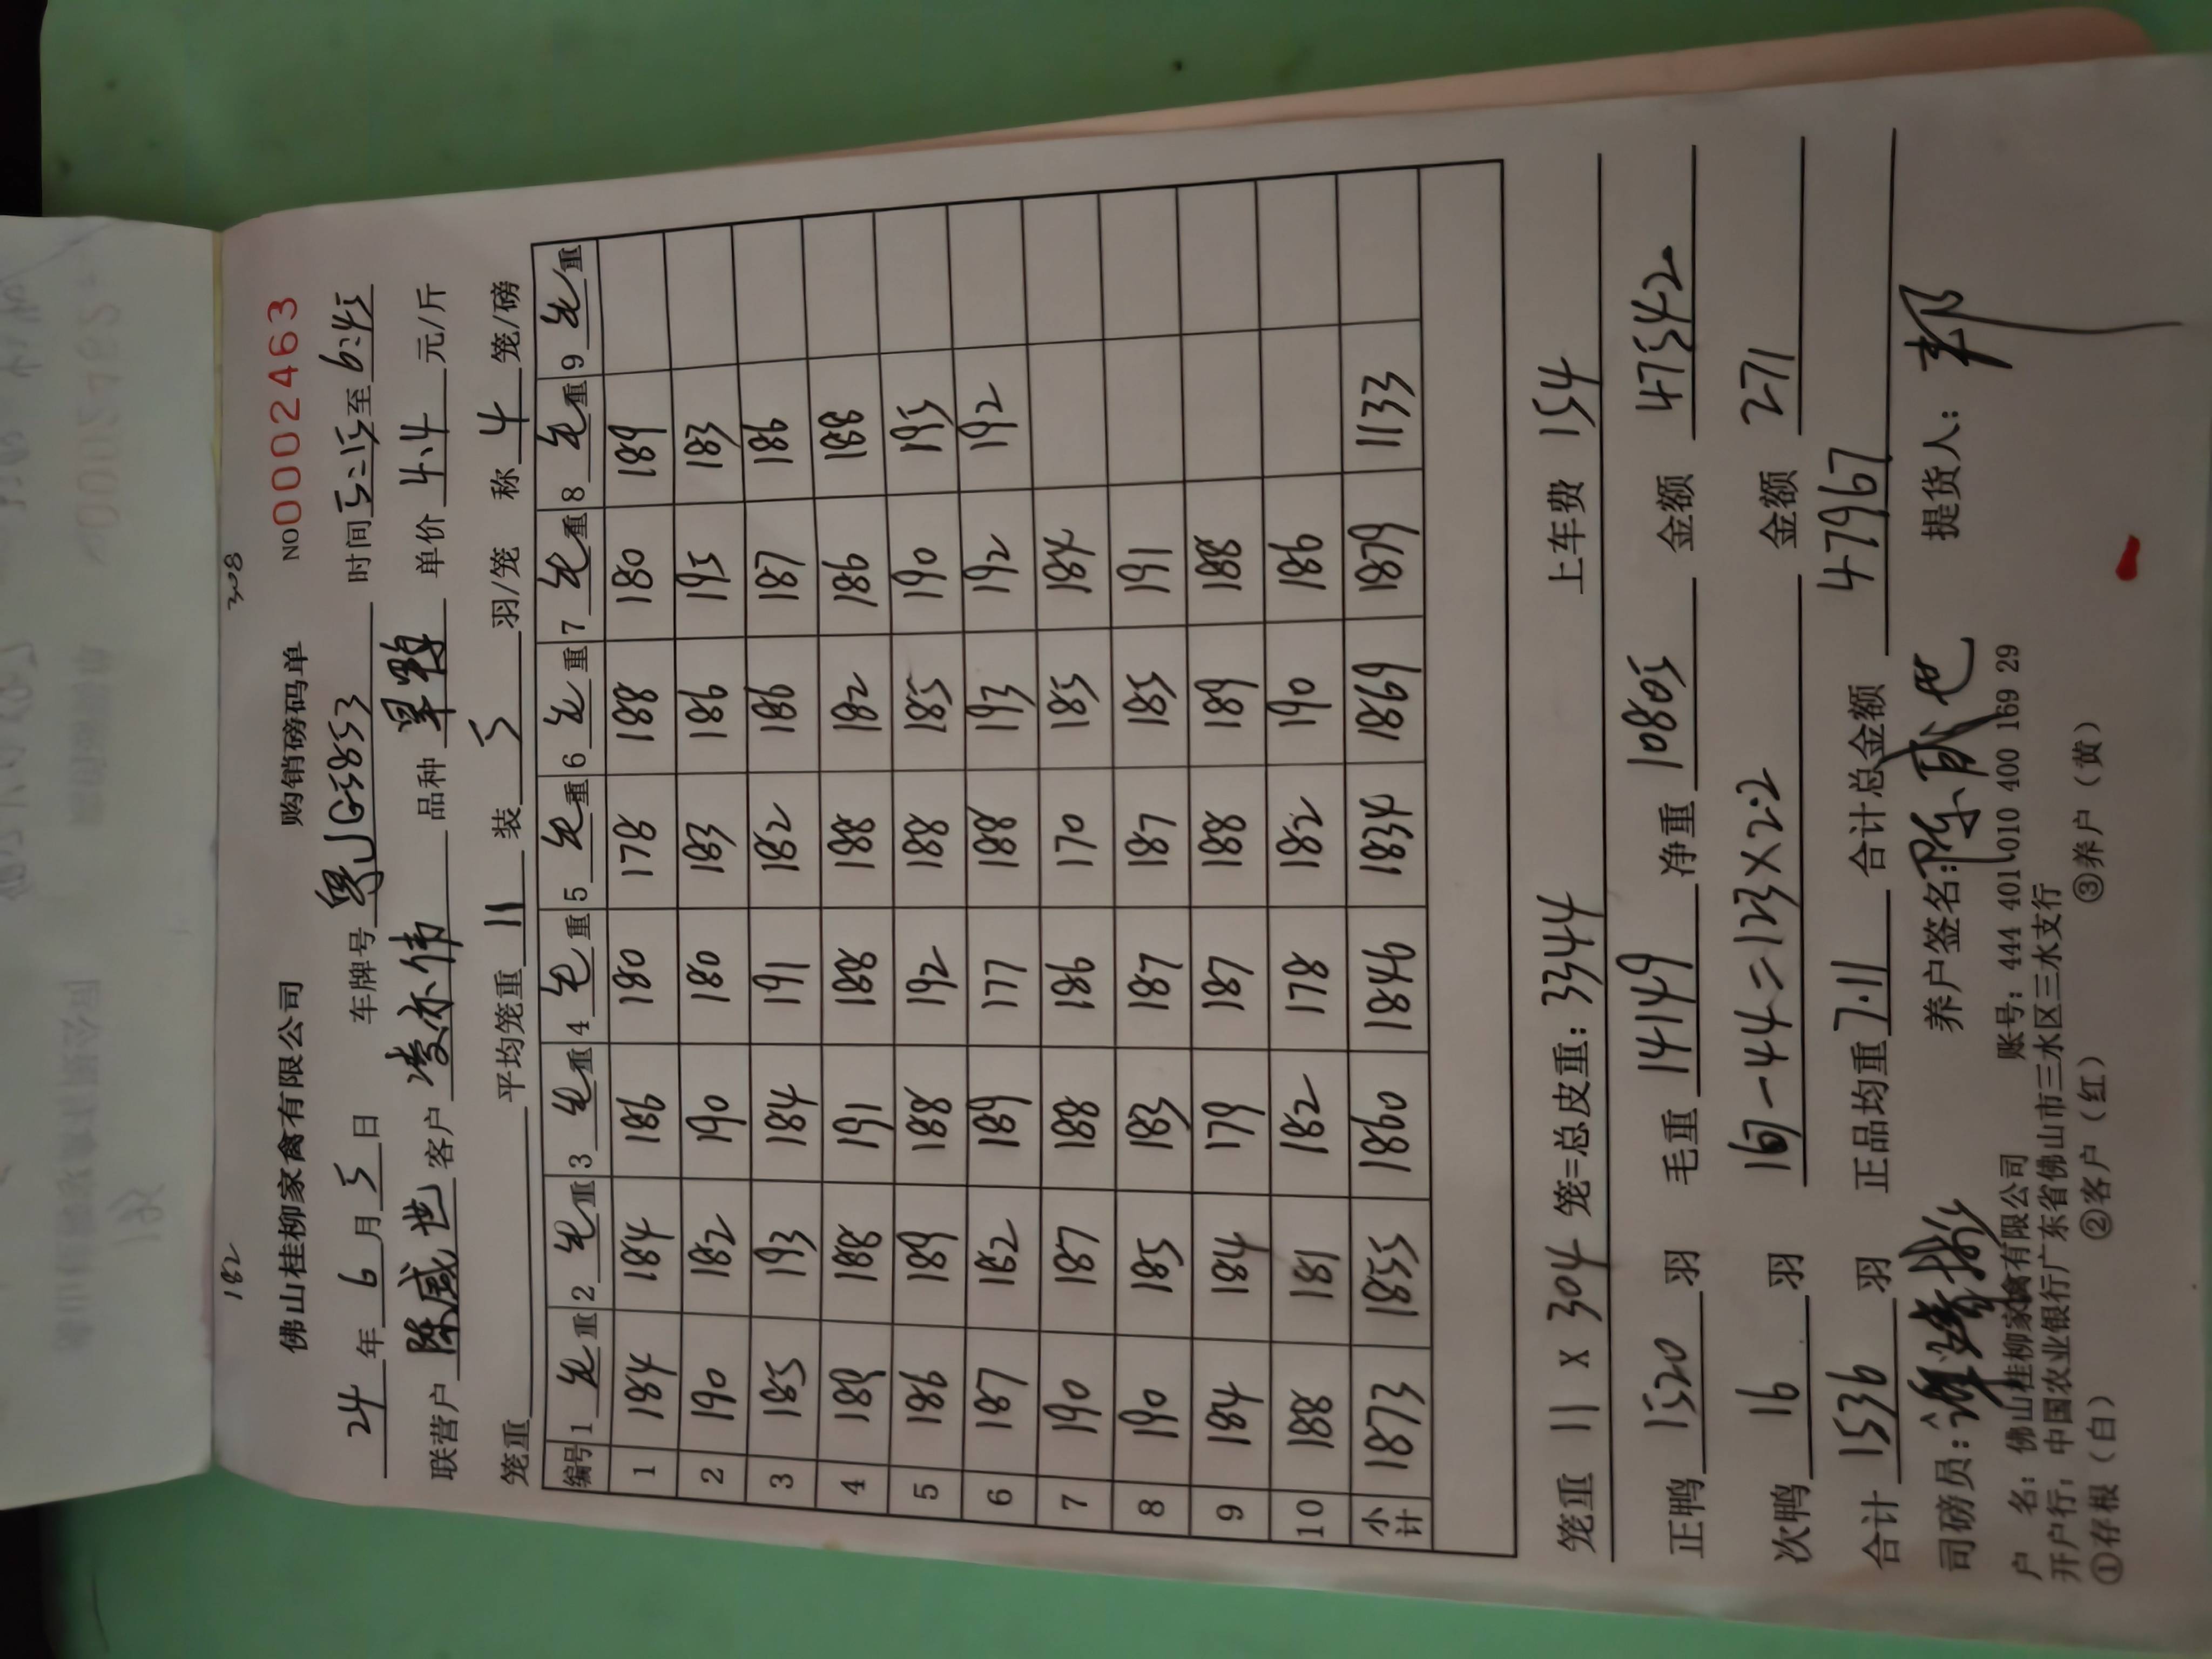 182 308
佛山桂柳家禽有限公司 购销磅码单 NO0002463
24年6月5日 车牌号粤JG3853 时间5:15至6:45
联营户陈威世客户凌亦伟 品种 单价4.4元/斤
笼重 平均笼重11装5羽/笼 称4笼/磅
编号 1毛重 2毛重 3毛重 4毛重 5毛重 6毛重 7毛重 8毛重 9毛重
1 184 184 186 180 178 188 180 189
2 190 182 190 180 183 186 195 183
3 185 193 184 191 182 186 187 186
4 189 188 191 188 188 182 186 188
5 186 189 188 192 188 185 190 195
6 187 182 189 177 188 193 192 192
7 190 187 188 186 170 185 184
8 190 185 183 187 187 185 191
9 184 184 179 187 188 189 188
10 188 181 182 178 182 190 186
小计 1873 1855 1860 1846 1834 1869 1879 1133
笼重 11 X 304 笼=总皮重:3344 上车费 154
正鸭 1520 羽 毛重 14149 净重 10805 金额 47542
次鸭 16 羽 167-44=123×2.2 金额 271
合计 1536 羽 正品均重 7.11 合计总金额 47967
司磅员: 养户签名:陈威世 提货人:
户 名:佛山桂柳家禽有限公司 账号:444 401 010 400 169 29
开户行:中国农业银行广东省佛山市三水区三水支行
①存根(白) ②客户(红) ③养户(黄)